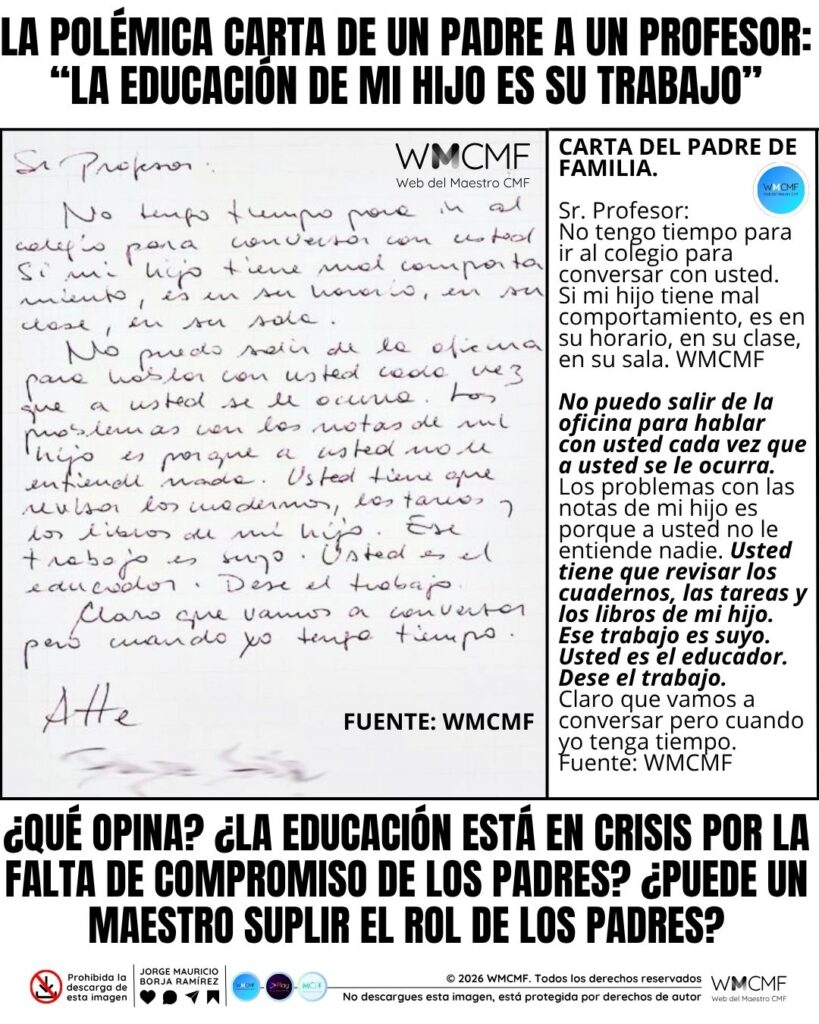 LA POLÉMICA CARTA DE UN PADRE A UN PROFESOR:
“LA EDUCACIÓN DE MI HIJO ES SU TRABAJO”
WMCMF
Web del Maestro CMF
Sr Profesor:
No tengo tiempo para ir al
colegio para conversar con usted
Si mi hijo tiene mal comporta
miento, es en su horario, en su
clase, en su sala.
No puedo salir de la oficina
para hablar con usted cada vez
que a usted se le ocurra. Los
problemas con las notas de mi
hijo es porque a usted no le
entiende nada. Usted tiene que
revisar los cuadernos, las tareas y
los libros de mi hijo. Ese
trabajo es suyo. Usted es el
educador. Dese el trabajo.
Claro que vamos a conversar
pero cuando yo tenga tiempo.
Atte
FUENTE: WMCMF
CARTA DEL PADRE DE
FAMILIA.
WMCMF
Sr. Profesor:
No tengo tiempo para
ir al colegio para
conversar con usted.
Si mi hijo tiene mal
comportamiento, es en
su horario, en su clase,
en su sala. WMCMF
No puedo salir de la
oficina para hablar
con usted cada vez que
a usted se le ocurra.
Los problemas con las
notas de mi hijo es
porque a usted no le
entiende nadie. Usted
tiene que revisar los
cuadernos, las tareas y
los libros de mi hijo.
Ese trabajo es suyo.
Usted es el educador.
Dese el trabajo.
Claro que vamos a
conversar pero cuando
yo tenga tiempo.
Fuente: WMCMF
¿QUÉ OPINA? ¿LA EDUCACIÓN ESTÁ EN CRISIS POR LA
FALTA DE COMPROMISO DE LOS PADRES? ¿PUEDE UN
MAESTRO SUPLIR EL ROL DE LOS PADRES?
Prohibida la
descarga de
esta imagen
JORGE MAURICIO
BORJA RAMÍREZ
WMCMF
Play
© 2026 WMCMF. Todos los derechos reservados
No descargues esta imagen, está protegida por derechos de autor
WMCMF
Web del Maestro CMF